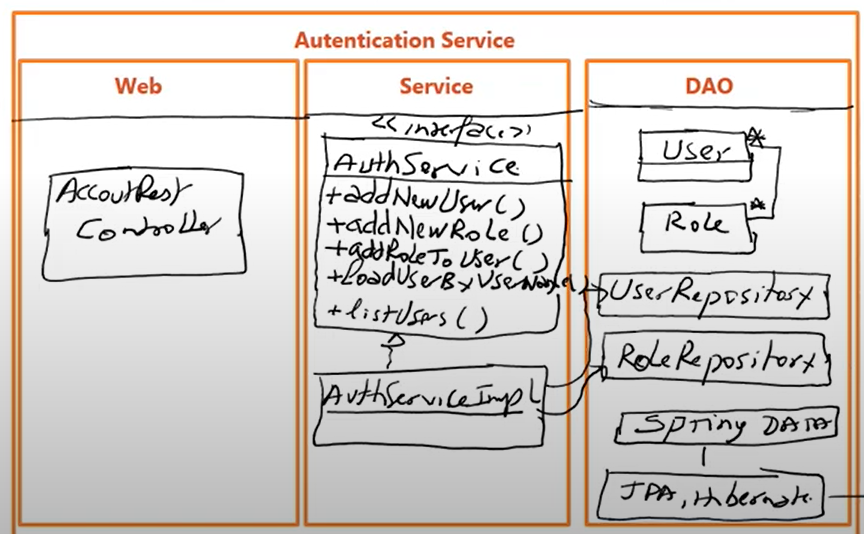 Autentication Service
Web
Service
DAO
AccoutRest
Controller
<<interface>>
AuthService
+addNewUser()
+addNewRole()
+addRoleToUser()
+loadUserByUserName()
+listUsers()
AuthServiceImpl
User
*
Role
*
UserRepository
RoleRepository
Spring DATA
JPA, Hibernate